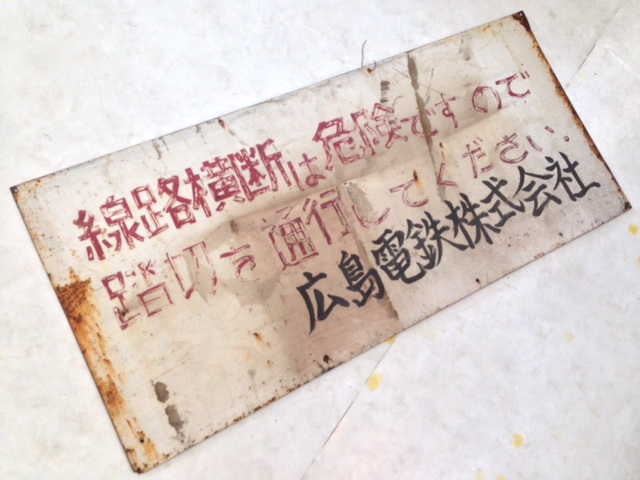 線路横断は危険ですので
踏切を通行してください.
広島電鉄株式会社